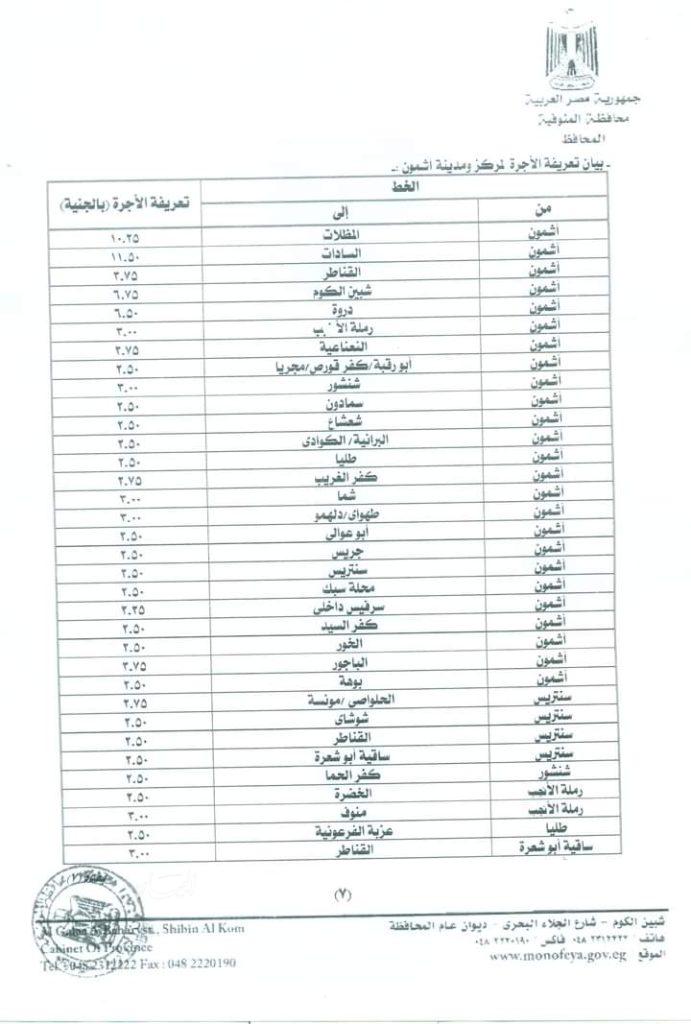 جمهورية مصر العربية
محافظة المنوفية
المحافظ
ـ بيان تعريفة الأجرة لمركز ومدينة أشمون :ـ
الخط تعريفة الأجرة (بالجنية)
من إلى
أشمون المظلات ١٠.٢٥
أشمون السادات ١١.٥٠
أشمون القناطر ٣.٧٥
أشمون شبين الكوم ٦.٧٥
أشمون دروة ٦.٥٠
أشمون رملة ٣.٠٠
أشمون النعناعية ٢.٧٥
أشمون أبو رقبة/كفر قورص/مجريا ٢.٥٠
أشمون شنشور ٣.٠٠
أشمون سمادون ٢.٥٠
أشمون شعشاع ٢.٥٠
أشمون البرانية/ الكوادى ٢.٥٠
أشمون طليا ٢.٥٠
أشمون كفر الغريب ٢.٧٥
أشمون شما ٣.٠٠
أشمون طهواى/دلهمو ٣.٠٠
أشمون أبو عوالى ٢.٥٠
أشمون جريس ٢.٥٠
أشمون سنتريس ٢.٥٠
أشمون محلة سبك ٢.٥٠
أشمون سرفيس داخلى ٢.٢٥
أشمون كفر السيد ٢.٥٠
أشمون الخور ٢.٥٠
أشمون الباجور ٣.٧٥
أشمون بوهة ٢.٥٠
سنتريس الحلواصى /مونسة ٢.٧٥
سنتريس شوشاى ٢.٥٠
سنتريس القناطر ٢.٥٠
سنتريس ساقية أبو شعرة ٢.٥٠
شنشور كفر الحما ٢.٥٠
رملة الأنجب الخضرة ٢.٥٠
رملة الأنجب منوف ٣.٠٠
طليا عزبة الفرعونية ٢.٥٠
ساقية أبو شعرة القناطر ٣.٠٠
(٧)
شبين الكوم - شارع الجلاء البحرى - ديوان عام المحافظة
هاتف ٠٤٨ ٢٣١٢٢٢٢ فاكس ٠٤٨ ٢٢٢٠١٩٠
الموقع www.monofeya.gov.eg
Shibin Al Kom
Cabinet Of Province
Tel : 048 2312222 Fax : 048 2220190